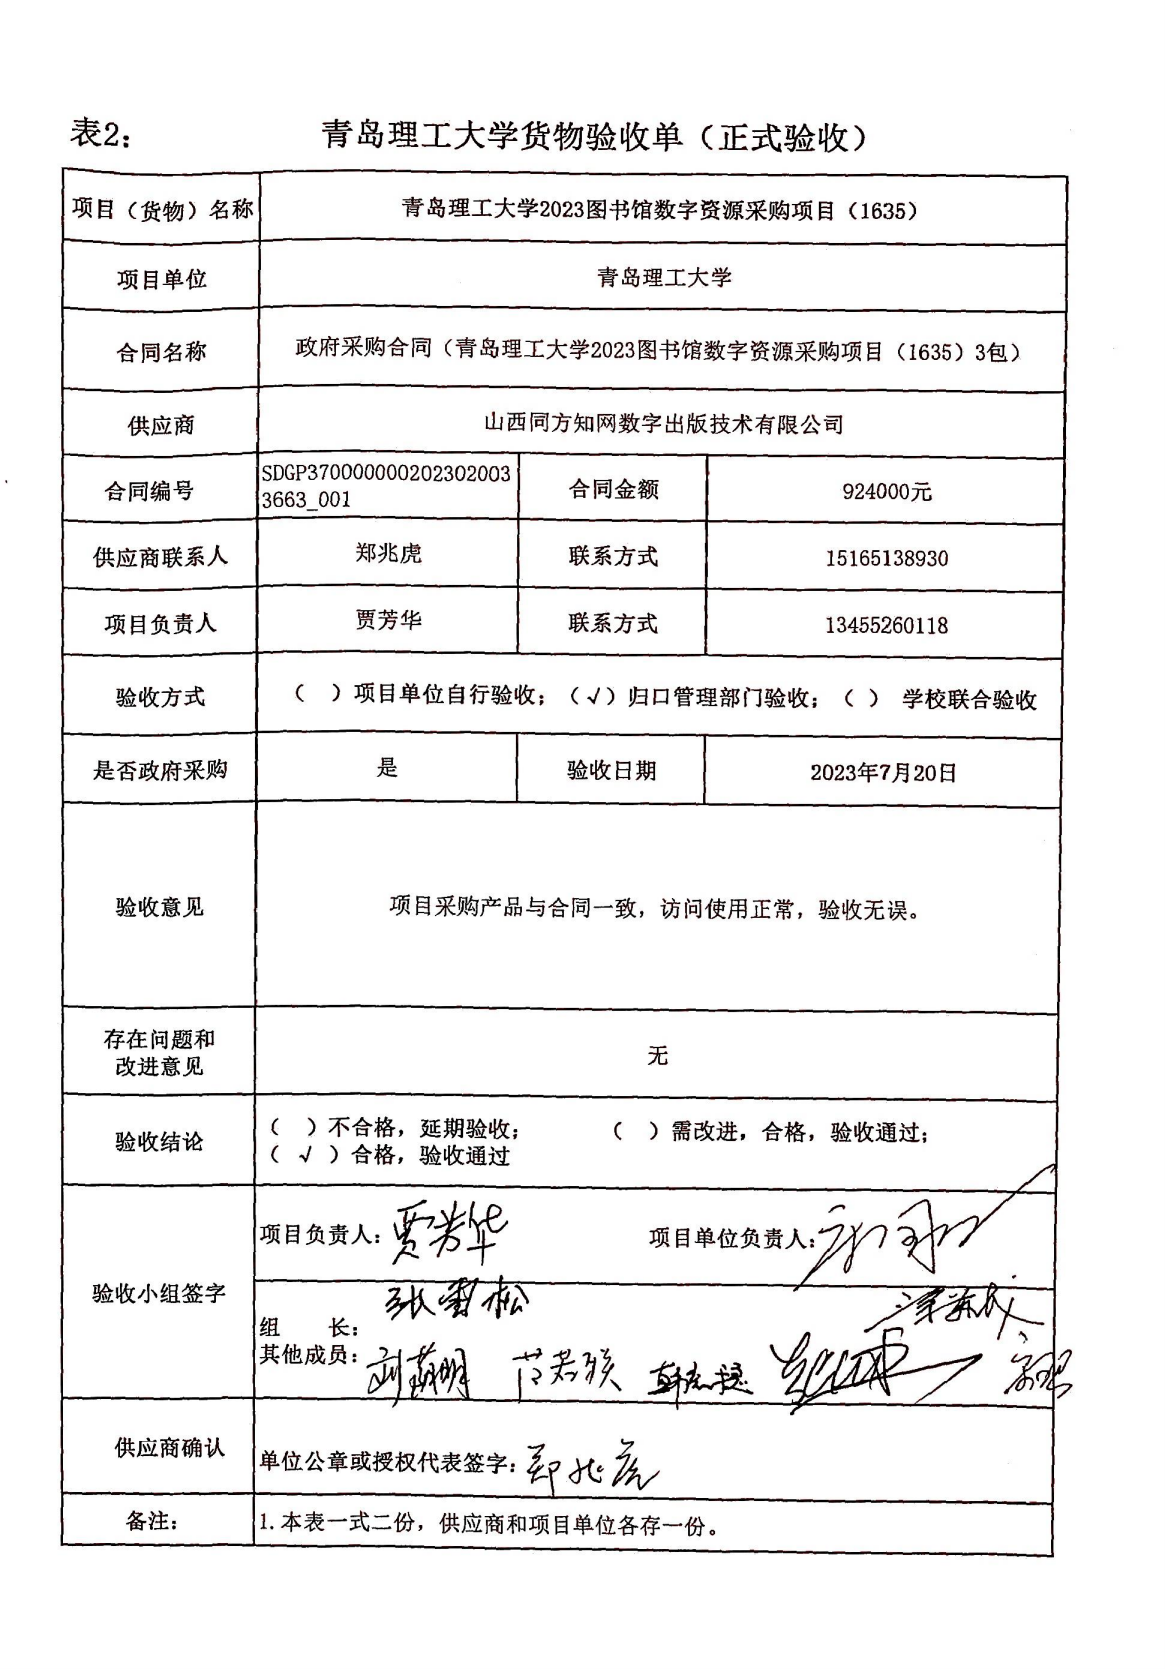 表2：
青岛理工大学货物验收单（正式验收）
项目（货物）名称 青岛理工大学2023图书馆数字资源采购项目（1635）
项目单位 青岛理工大学
合同名称 政府采购合同（青岛理工大学2023图书馆数字资源采购项目（1635）3包）
供应商 山西同方知网数字出版技术有限公司
合同编号 SDGP370000000202302003
3663_001 合同金额 924000元
供应商联系人 郑兆虎 联系方式 15165138930
项目负责人 贾芳华 联系方式 13455260118
验收方式 （ ）项目单位自行验收；（√）归口管理部门验收；（ ） 学校联合验收
是否政府采购 是 验收日期 2023年7月20日
验收意见 项目采购产品与合同一致，访问使用正常，验收无误。
存在问题和
改进意见 无
验收结论 （ ）不合格，延期验收； （ ）需改进，合格，验收通过；
（ √ ）合格，验收通过
验收小组签字 项目负责人：贾芳华 项目单位负责人：
组 长：张雪松
其他成员：
供应商确认 单位公章或授权代表签字：郑兆虎
备注： 1.本表一式二份，供应商和项目单位各存一份。